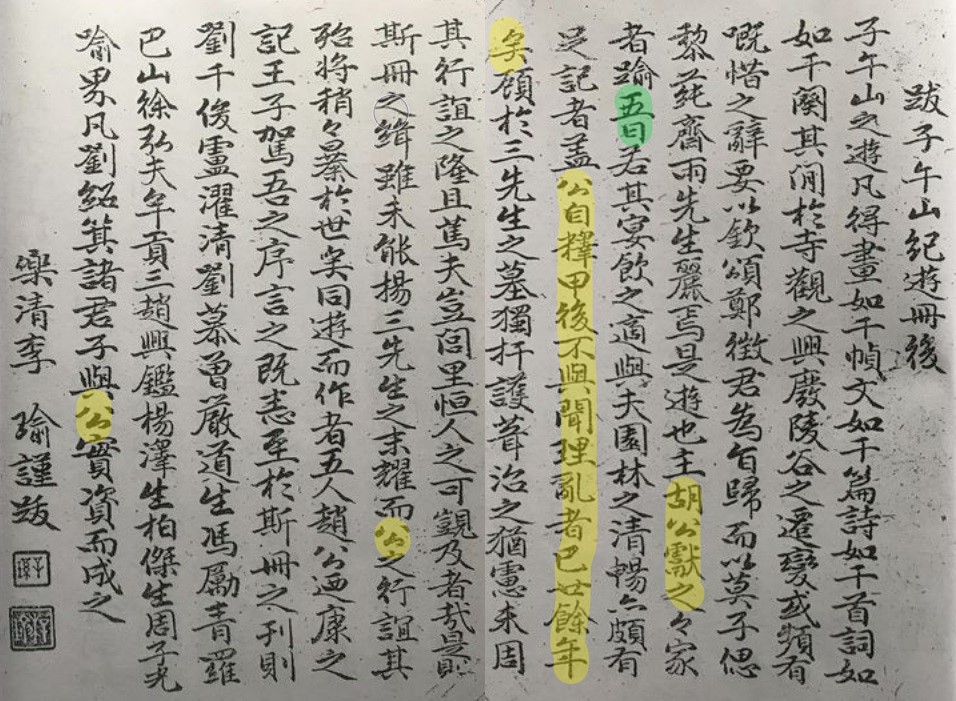 跋子午山紀遊冊後
子午山之遊凡得畫如干幀文如干篇詩如干首詞如
如干闋其間於寺觀之興廢陵谷之遷變或頻有
嘅惜之辭要以欽頌鄭徵君為旨歸而以莫子偲
黎蒓齋兩先生麗焉是遊也主胡公獻之々家
者踰五日若其宴飲之適與夫園林之清暢亦頗有
足記者蓋公自擇甲後不與聞理亂者已廿餘年
矣顧於三先生之墓獨扞護葺治之猶慮未周
其行誼之隆且篤夫豈閭里恒人之可覬及者哉是則
斯冊之緝雖未能揚三先生之末耀而公之行誼其
殆將稍々暴於世矣同遊而作者五人趙公廼康之
記王子駕吾之序言之既悉至於斯冊之刊則
劉千俊盧濯清劉慕曾嚴道生馮厲青羅
巴山徐弘夫牟貢三趙興鑑楊澤生柏傑生周子光
喻界凡劉紹箕諸君子與公實資而成之
樂清李瑜謹跋